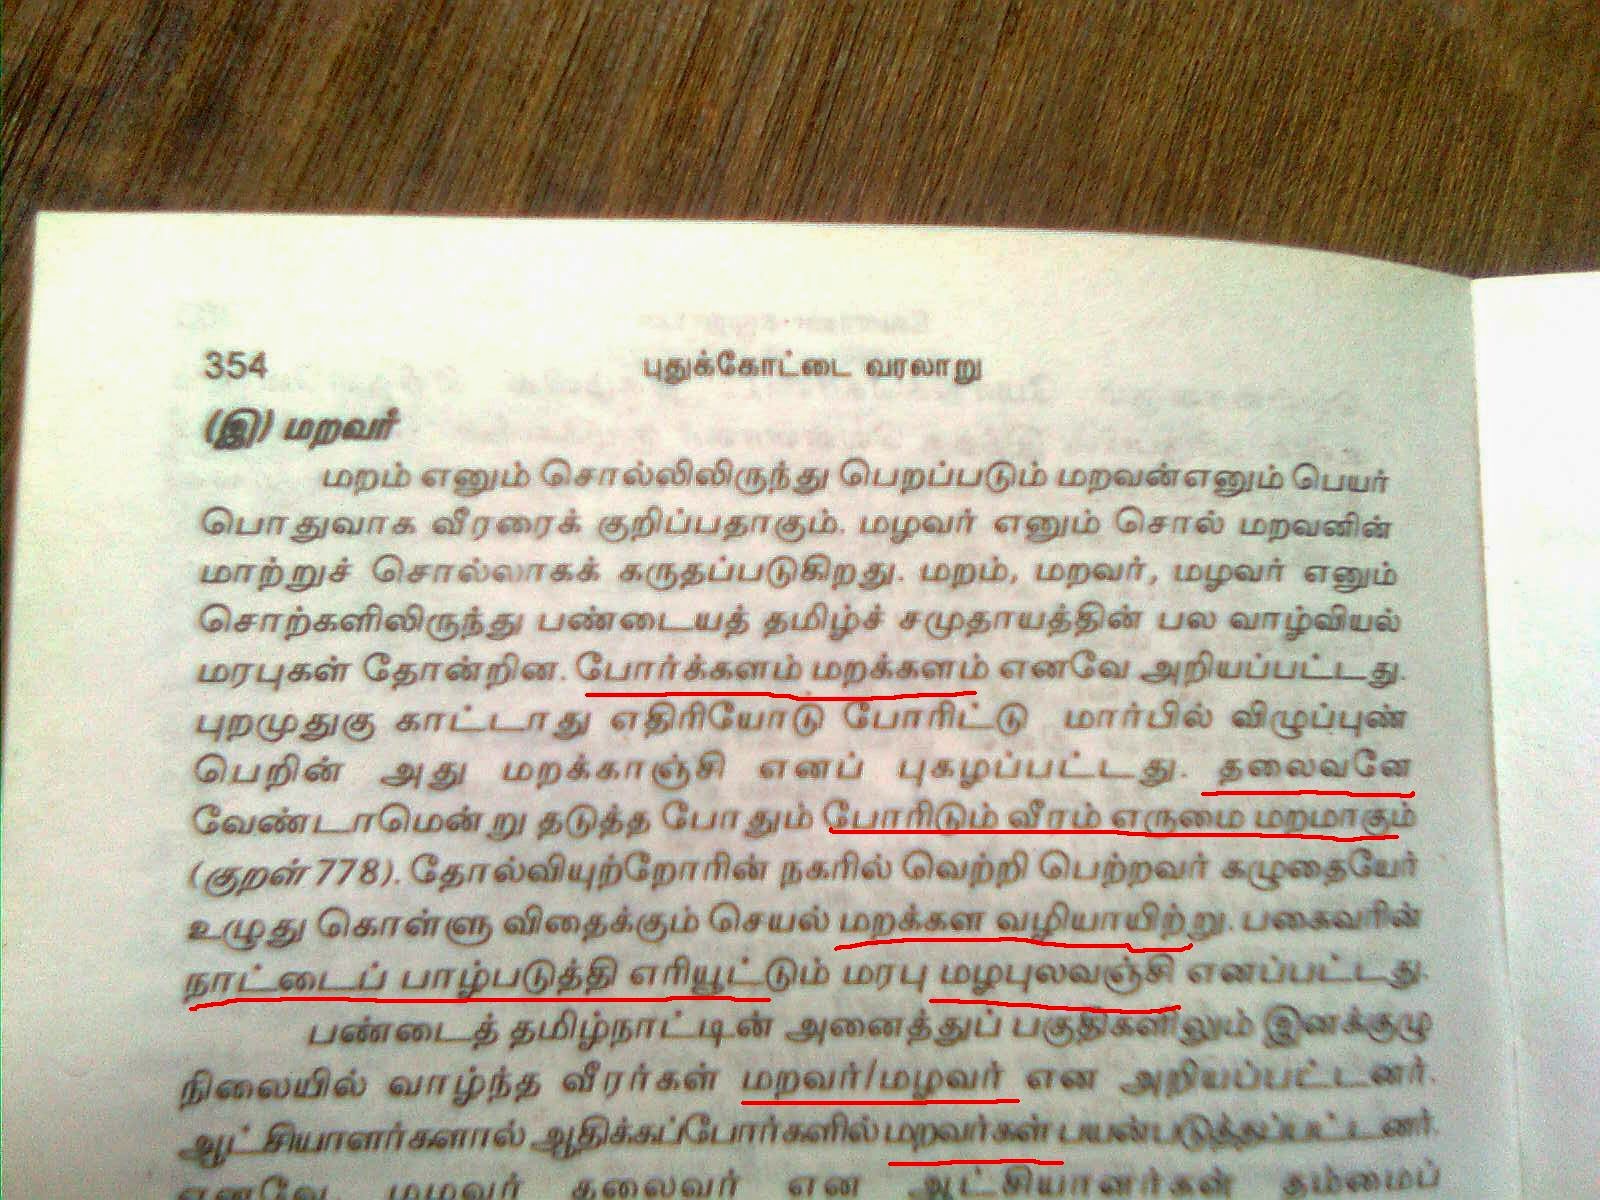 354
புதுக்கோட்டை வரலாறு
(இ) மறவர்
மறம் எனும் சொல்லிலிருந்து பெறப்படும் மறவன்எனும் பெயர்
பொதுவாக வீரரைக் குறிப்பதாகும். மழவர் எனும் சொல் மறவனின்
மாற்றுச் சொல்லாகக் கருதப்படுகிறது. மறம், மறவர், மழவர் எனும்
சொற்களிலிருந்து பண்டையத் தமிழ்ச் சமுதாயத்தின் பல வாழ்வியல்
மரபுகள் தோன்றின. போர்க்களம் மறக்களம் எனவே அறியப்பட்டது.
புறமுதுகு காட்டாது எதிரியோடு போரிட்டு மார்பில் விழுப்புண்
பெறின் அது மறக்காஞ்சி எனப் புகழப்பட்டது. தலைவனே
வேண்டாமென்று தடுத்த போதும் போரிடும் வீரம் எருமை மறமாகும்
(குறள் 778). தோல்வியுற்றோரின் நகரில் வெற்றி பெற்றவர் கழுதையேர்
உழுது கொள்ளு விதைக்கும் செயல் மறக்கள வழியாயிற்று. பகைவரின்
நாட்டைப் பாழ்படுத்தி எரியூட்டும் மரபு மழபுலவஞ்சி எனப்பட்டது.
பண்டைத் தமிழ்நாட்டின் அனைத்துப் பகுதிகளிலும் இனக்குழு
நிலையில் வாழ்ந்த வீரர்கள் மறவர்/மழவர் என அறியப்பட்டனர்.
ஆட்சியாளர்களால் ஆதிக்கப்போர்களில் மறவர்கள் பயன்படுத்தப்பட்டனர்.
எனவே மழவர் தலைவர் என ஆட்சியாளர்கள் தம்மைப்